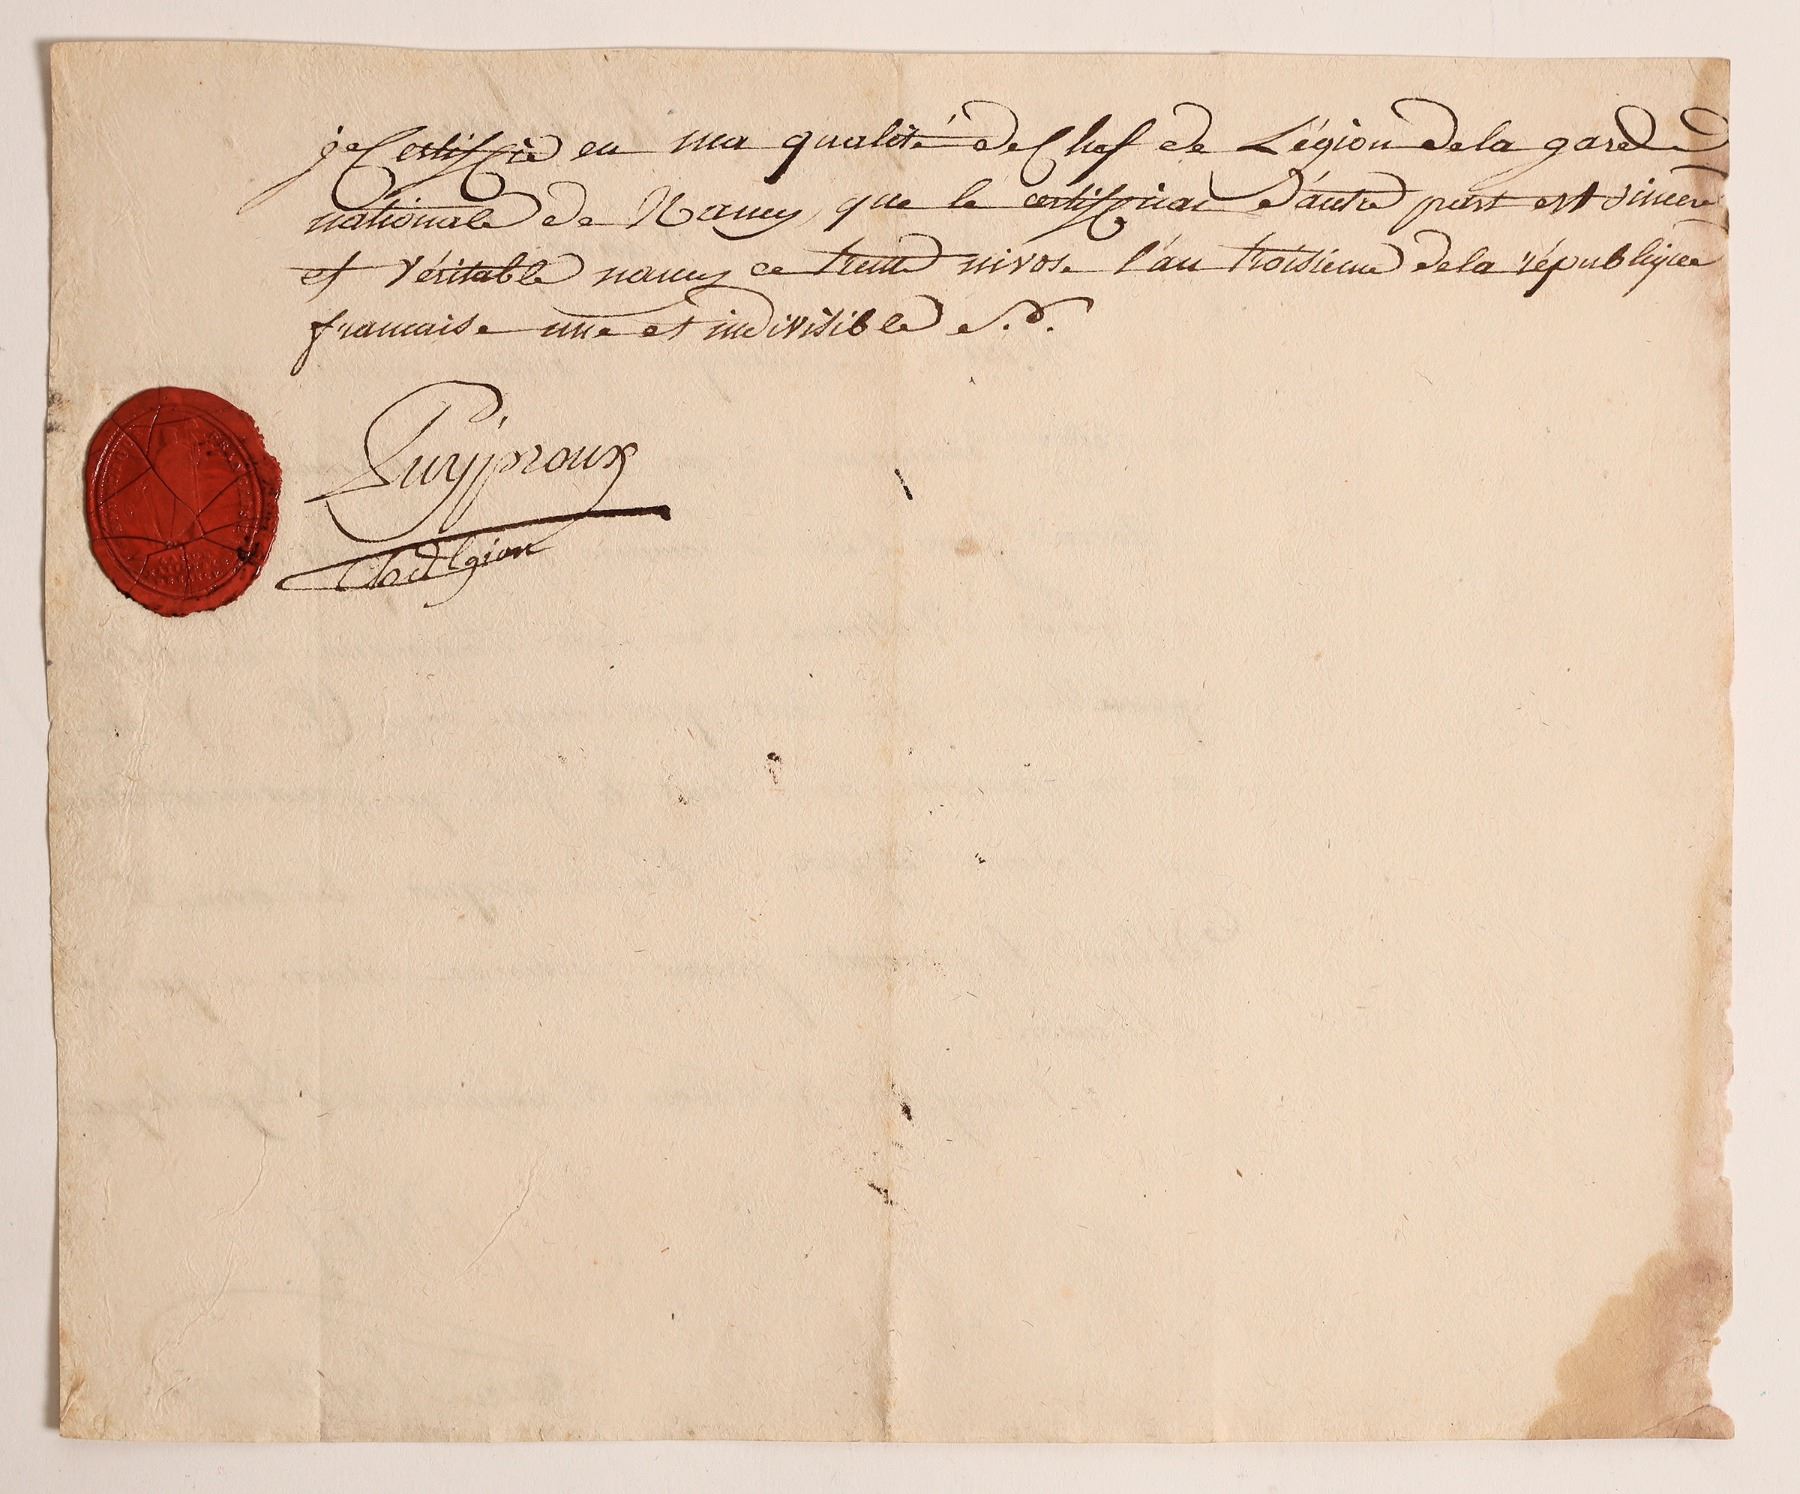 je Certiffie en ma qualité de Chef de Légion de la garde
nationale de Nancy, que le certifficat d'autre part est sincere
et véritable nancy ce trente nivose l'an troisieme de la république
francaise une et indivisible
Puyproux